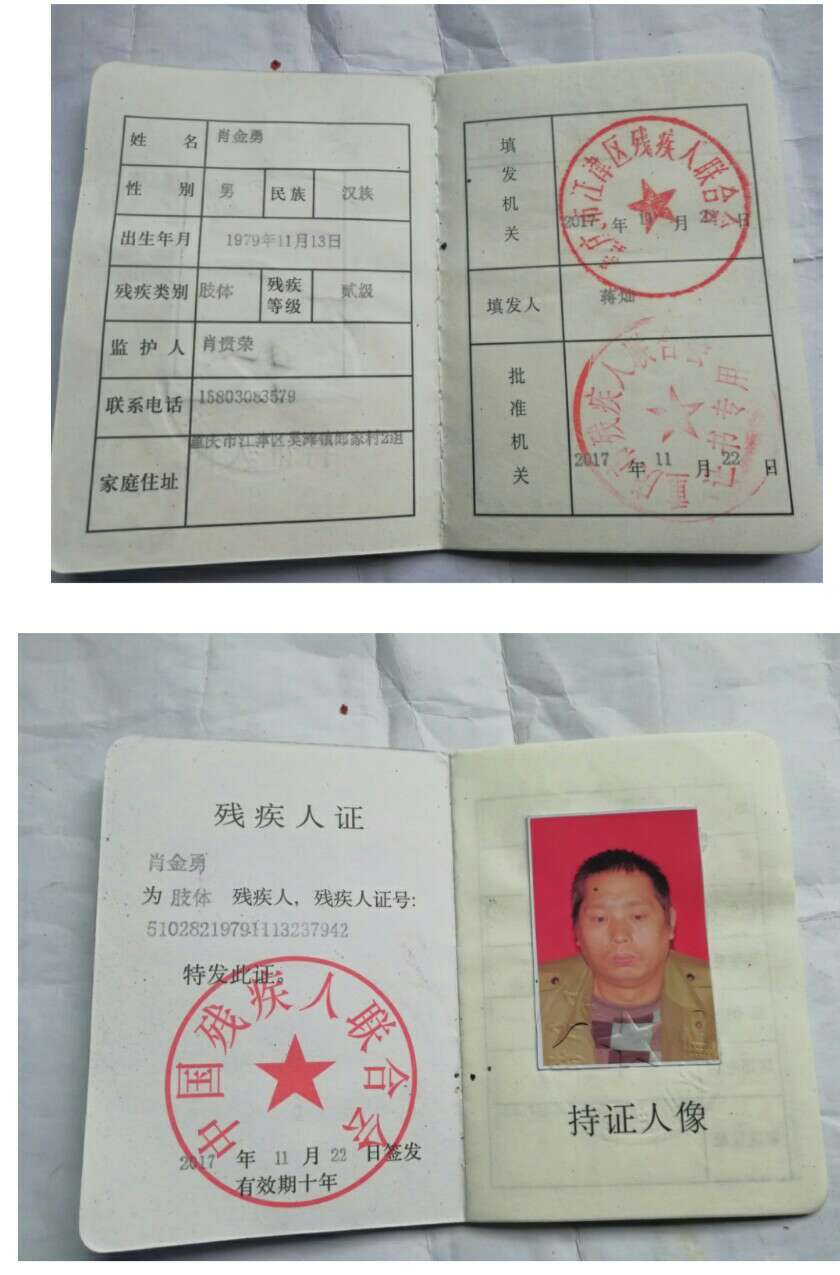 姓 名 肖金勇
性 别 男 民族 汉族
出生年月 1979年11月13日
残疾类别 肢体 残疾等级 贰级
监护人 肖贵荣
联系电话 15803083579
家庭住址 重庆市江津区吴滩镇郎家村2组
填发机关
庆市江津区残疾人联合会
2017 年 11 月 22 日
填发人 蒋灿
批准机关
残疾人联合会
专用
2017 年 11 月 22 日
残疾人证
肖金勇
为 肢体 残疾人，残疾人证号：
51028219791113237942
特发此证。
中国残疾人联合会
2017 年 11 月 22 日签发
有效期十年
持证人像